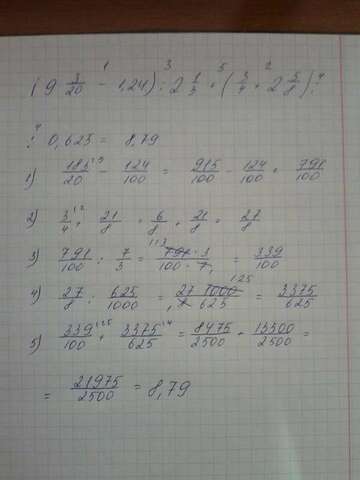 (9 3/20 - 1,24) : 2 1/3 + (3/4 + 2 5/8) :
: 0,625 = 8,79
1) 183/20 - 124/100 = 915/100 - 124/100 = 791/100
2) 3/4 + 21/8 = 6/8 + 21/8 = 27/8
3) 791/100 : 7/3 = 791·3/100·7 = 339/100
4) 27/8 : 625/1000 = 27·1000/8·625 = 3375/625
5) 339/100 + 3375/625 = 8475/2500 + 13500/2500 =
= 21975/2500 = 8,79